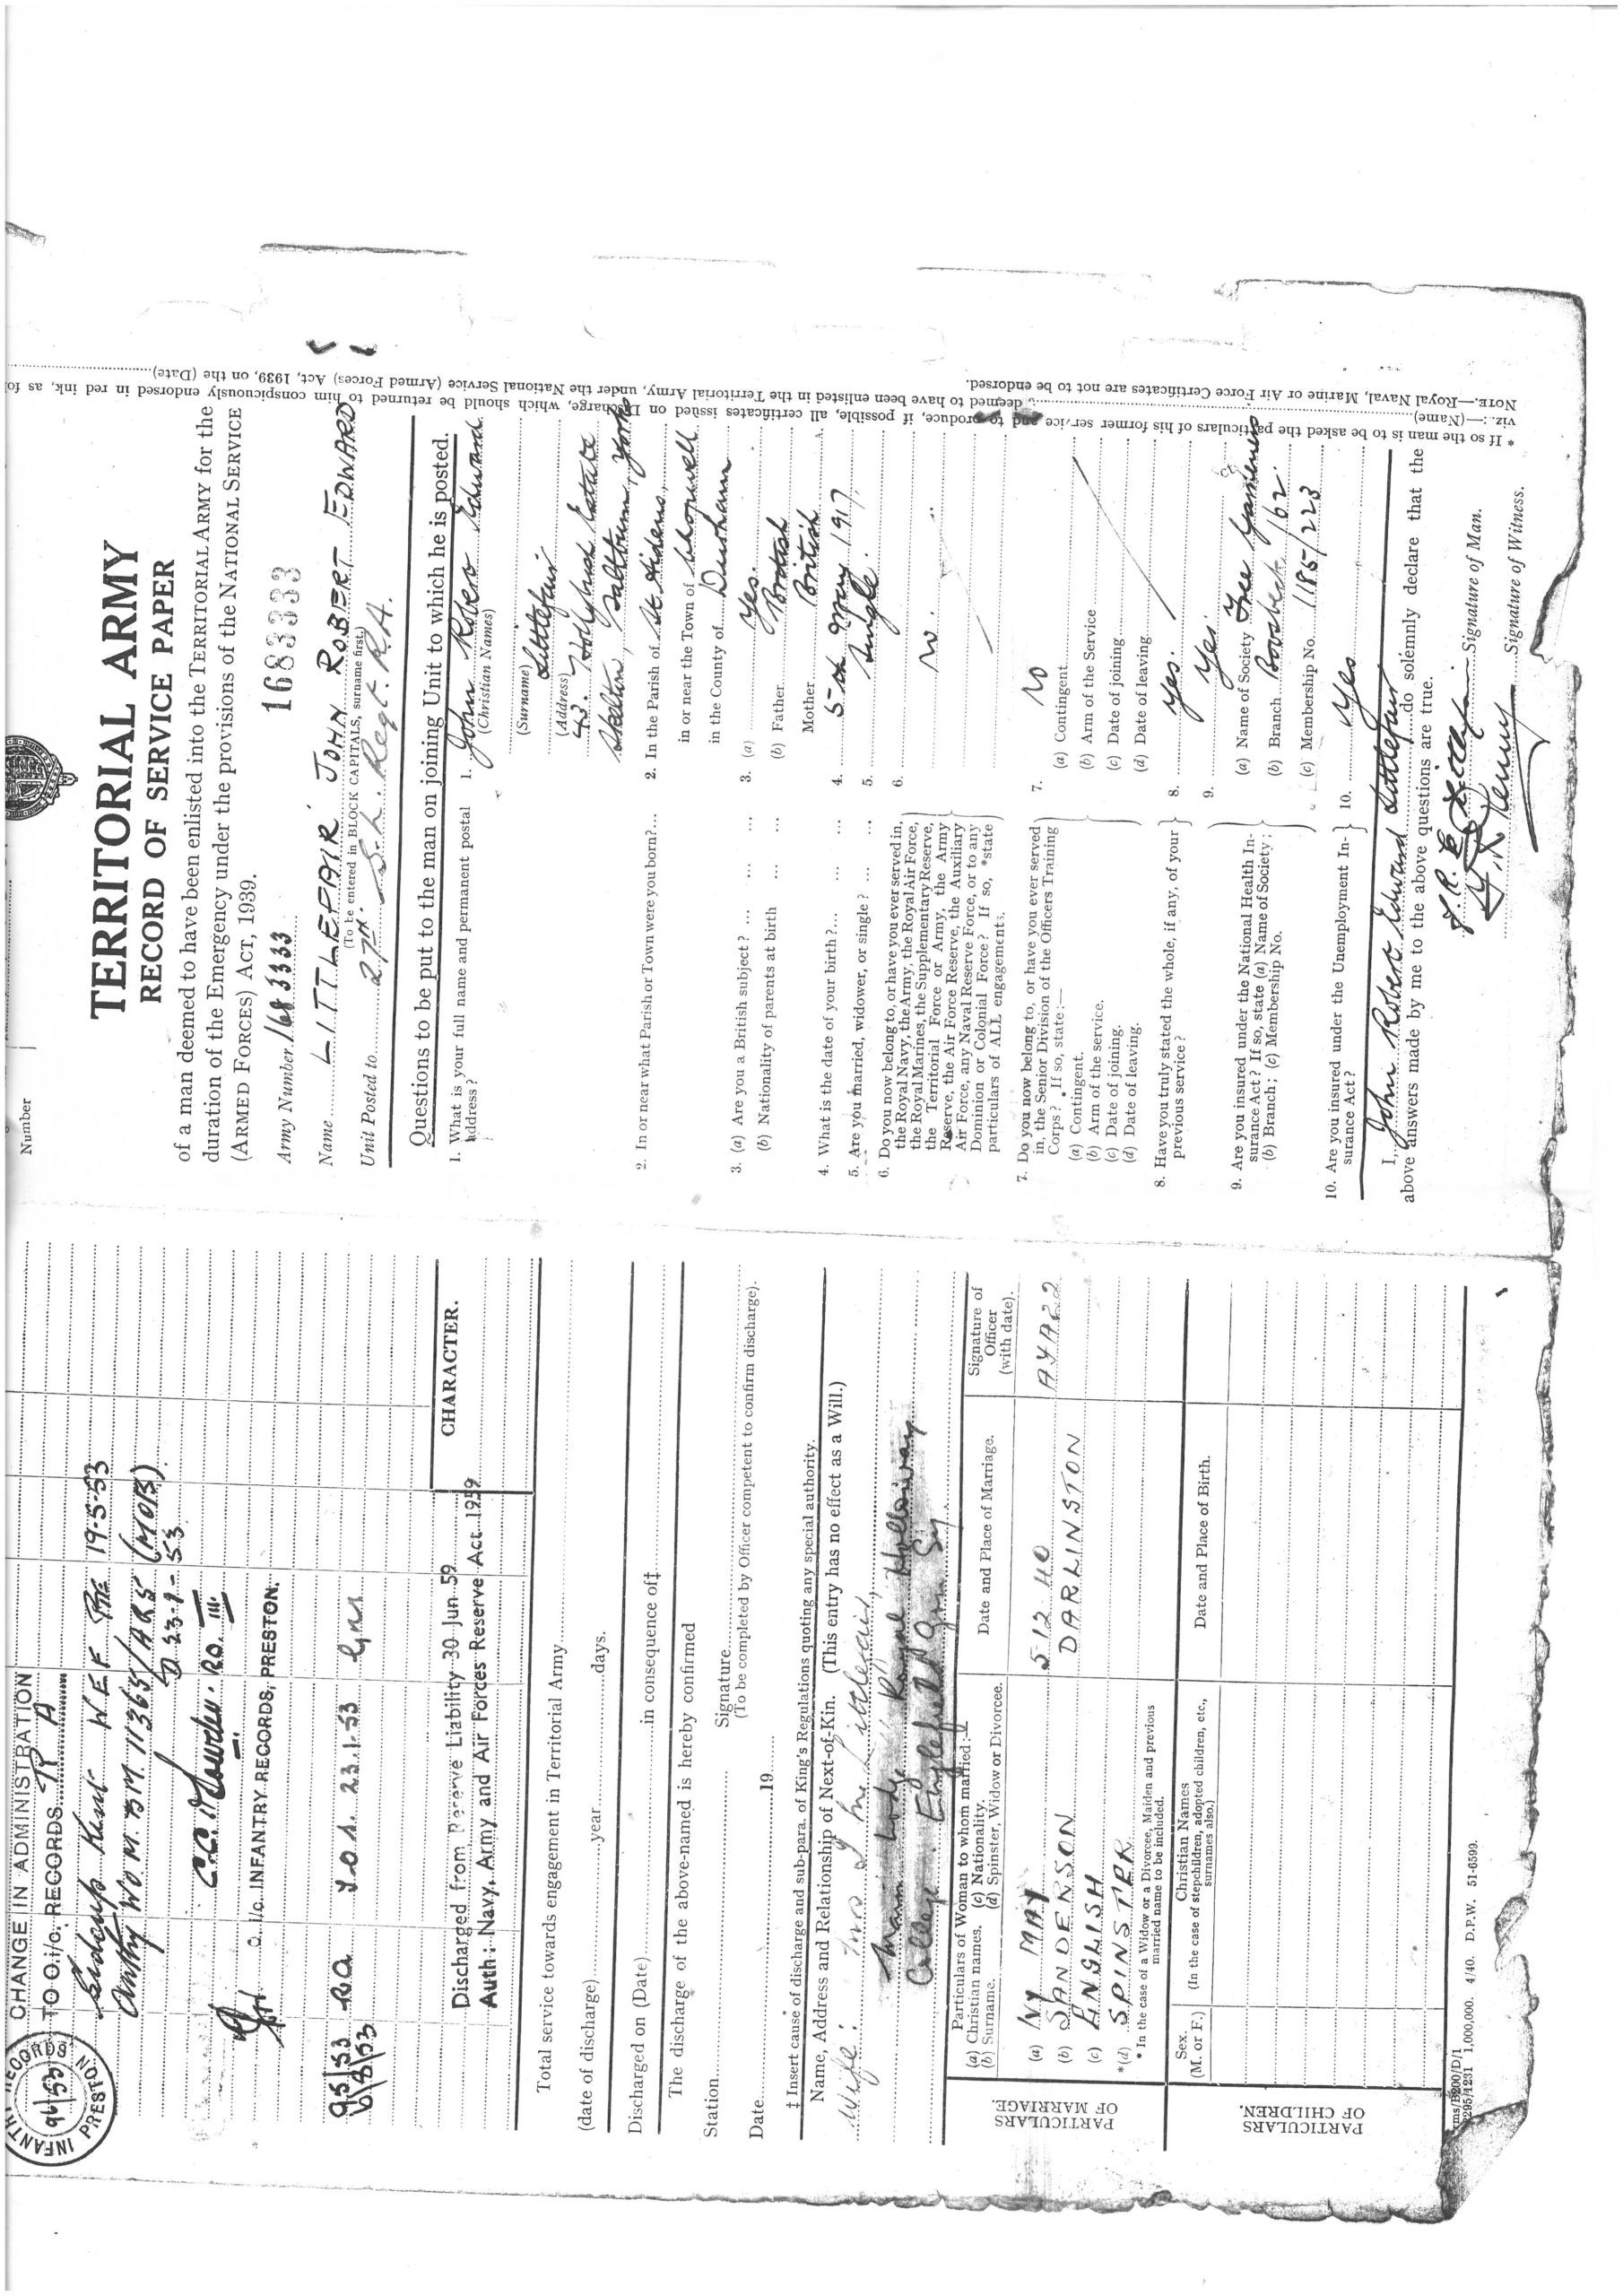 CHANGE IN ADMINISTRATION
TO O. i/c. RECORDS R A
Sidcup Kent W E F 19-5-53
Authy W.O. M. BM. 11365/AG5 (MOB)
D 23-1-53
RO III
O. i/c. INFANTRY RECORDS, PRESTON.
INFANTRY RECORDS NO
96/53
PRESTON
95/53
6/8/53
RA
23.1.53
Gnr
Discharged from Reserve Liability 30 Jun 59
Auth: Navy, Army and Air Forces Reserve Act 1959
CHARACTER.
Total service towards engagement in Territorial Army
(date of discharge) year days.
Discharged on (Date) in consequence of‡
The discharge of the above-named is hereby confirmed
Station Signature
(To be completed by Officer competent to confirm discharge).
Date 19
‡ Insert cause of discharge and sub-para. of King's Regulations quoting any special authority.
Name, Address and Relationship of Next-of-Kin. (This entry has no effect as a Will.)
Wife: Mrs I M Littlefair,
Lodge Royal Holloway
College Englefield Grn Sy
PARTICULARS OF MARRIAGE.
Particulars of Woman to whom married:—
(a) Christian names. (c) Nationality.
(b) Surname. (d) Spinster, Widow or Divorcee.
Date and Place of Marriage.
Signature of Officer (with date).
(a) IVY MAY
(b) SANDENSON
(c) ENGLISH
*(d) SPINSTER
5 12 40
DARLINSTON
* In the case of a Widow or a Divorcee, Maiden and previous
married name to be included.
PARTICULARS OF CHILDREN.
Sex. (M. or F.)
Christian Names
(In the case of stepchildren, adopted children, etc., surnames also.)
Date and Place of Birth.
1,000,000. 4/40. D.P.W. 51-6599.
Number
TERRITORIAL ARMY
RECORD OF SERVICE PAPER
of a man deemed to have been enlisted into the TERRITORIAL ARMY for the
duration of the Emergency under the provisions of the NATIONAL SERVICE
(ARMED FORCES) ACT, 1939.
Army Number 1683333 1683333
Name LITTLEFAIR JOHN ROBERT EDWARD
(To be entered in BLOCK CAPITALS, surname first.)
Unit Posted to 27TH. S.L. Regt. R.A.
Questions to be put to the man on joining Unit to which he is posted.
1. What is your full name and permanent postal address?
1. John Robert Edward
(Christian Names)
(Surname) Littlefair
(Address)
43. Hollybush Estate
Skelton, Saltburn, Yorks
2. In or near what Parish or Town were you born?...
2. In the Parish of St Aidens,
in or near the Town of Chopwell
in the County of Durham
3. (a) Are you a British subject? ... ... ...
3. (a) Yes.
(b) Nationality of parents at birth ... ...
(b) Father British
Mother British
4. What is the date of your birth?... ... ...
4. 5th May 1917.
5. Are you married, widower, or single? ... ...
5. Single.
6. Do you now belong to, or have you ever served in,
the Royal Navy, the Army, the Royal Air Force,
the Royal Marines, the Supplementary Reserve,
the Territorial Force or Army, the Army
Reserve, the Air Force Reserve, the Auxiliary
Air Force, any Naval Reserve Force, or to any
Dominion or Colonial Force? If so, *state
particulars of ALL engagements.
6. No.
7. Do you now belong to, or have you ever served
in, the Senior Division of the Officers Training
Corps? If so, state:—
(a) Contingent.
(b) Arm of the service.
(c) Date of joining.
(d) Date of leaving.
7. No
(a) Contingent
(b) Arm of the Service
(c) Date of joining
(d) Date of leaving
8. Have you truly stated the whole, if any, of your
previous service?
8. Yes.
9. Are you insured under the National Health In-
surance Act? If so, state (a) Name of Society;
(b) Branch; (c) Membership No.
9. Yes.
(a) Name of Society Free Gardeners
(b) Branch Boosbeck 162.
(c) Membership No. 1185/223
10. Are you insured under the Unemployment In-
surance Act?
10. Yes
I, John Robert Edward Littlefair do solemnly declare that the
above answers made by me to the above questions are true.
Signature of Man.
Signature of Witness.
* If so the man is to be asked the particulars of his former service and to produce, if possible, all certificates issued on Discharge, which should be returned to him conspicuously endorsed in red ink, as fo
viz. :—(Name) deemed to have been enlisted in the Territorial Army, under the National Service (Armed Forces) Act, 1939, on the (Date)
NOTE.—Royal Naval, Marine or Air Force Certificates are not to be endorsed.